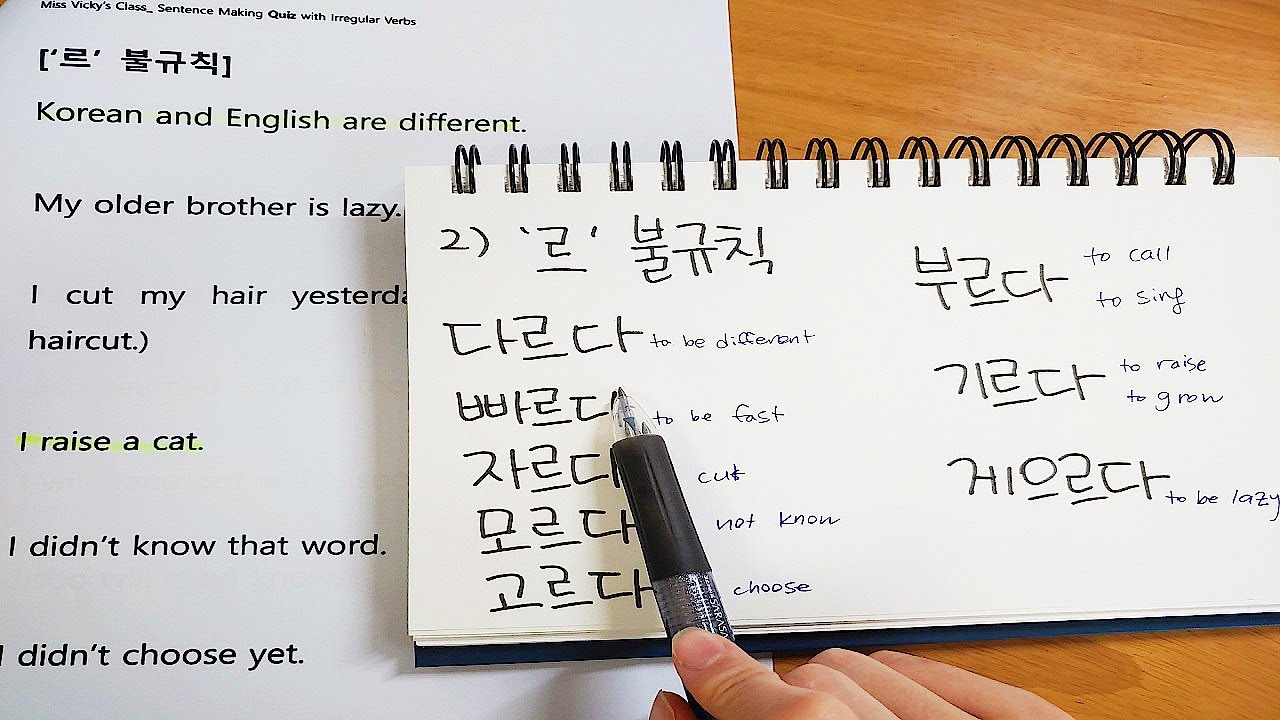 Miss Vicky's Class_ Sentence Making Quiz with Irregular Verbs
['르' 불규칙]
Korean and English are different.
My older brother is lazy.
I cut my hair
haircut.)
I raise a cat.
I didn't know that word.
I didn't choose yet.
2) '르' 불규칙
다르다 to be different
빠르다 to be fast
자르다 cut
모르다 not know
고르다 choose
부르다 to call
to sing
기르다 to raise
to grow
게으르다 to be lazy